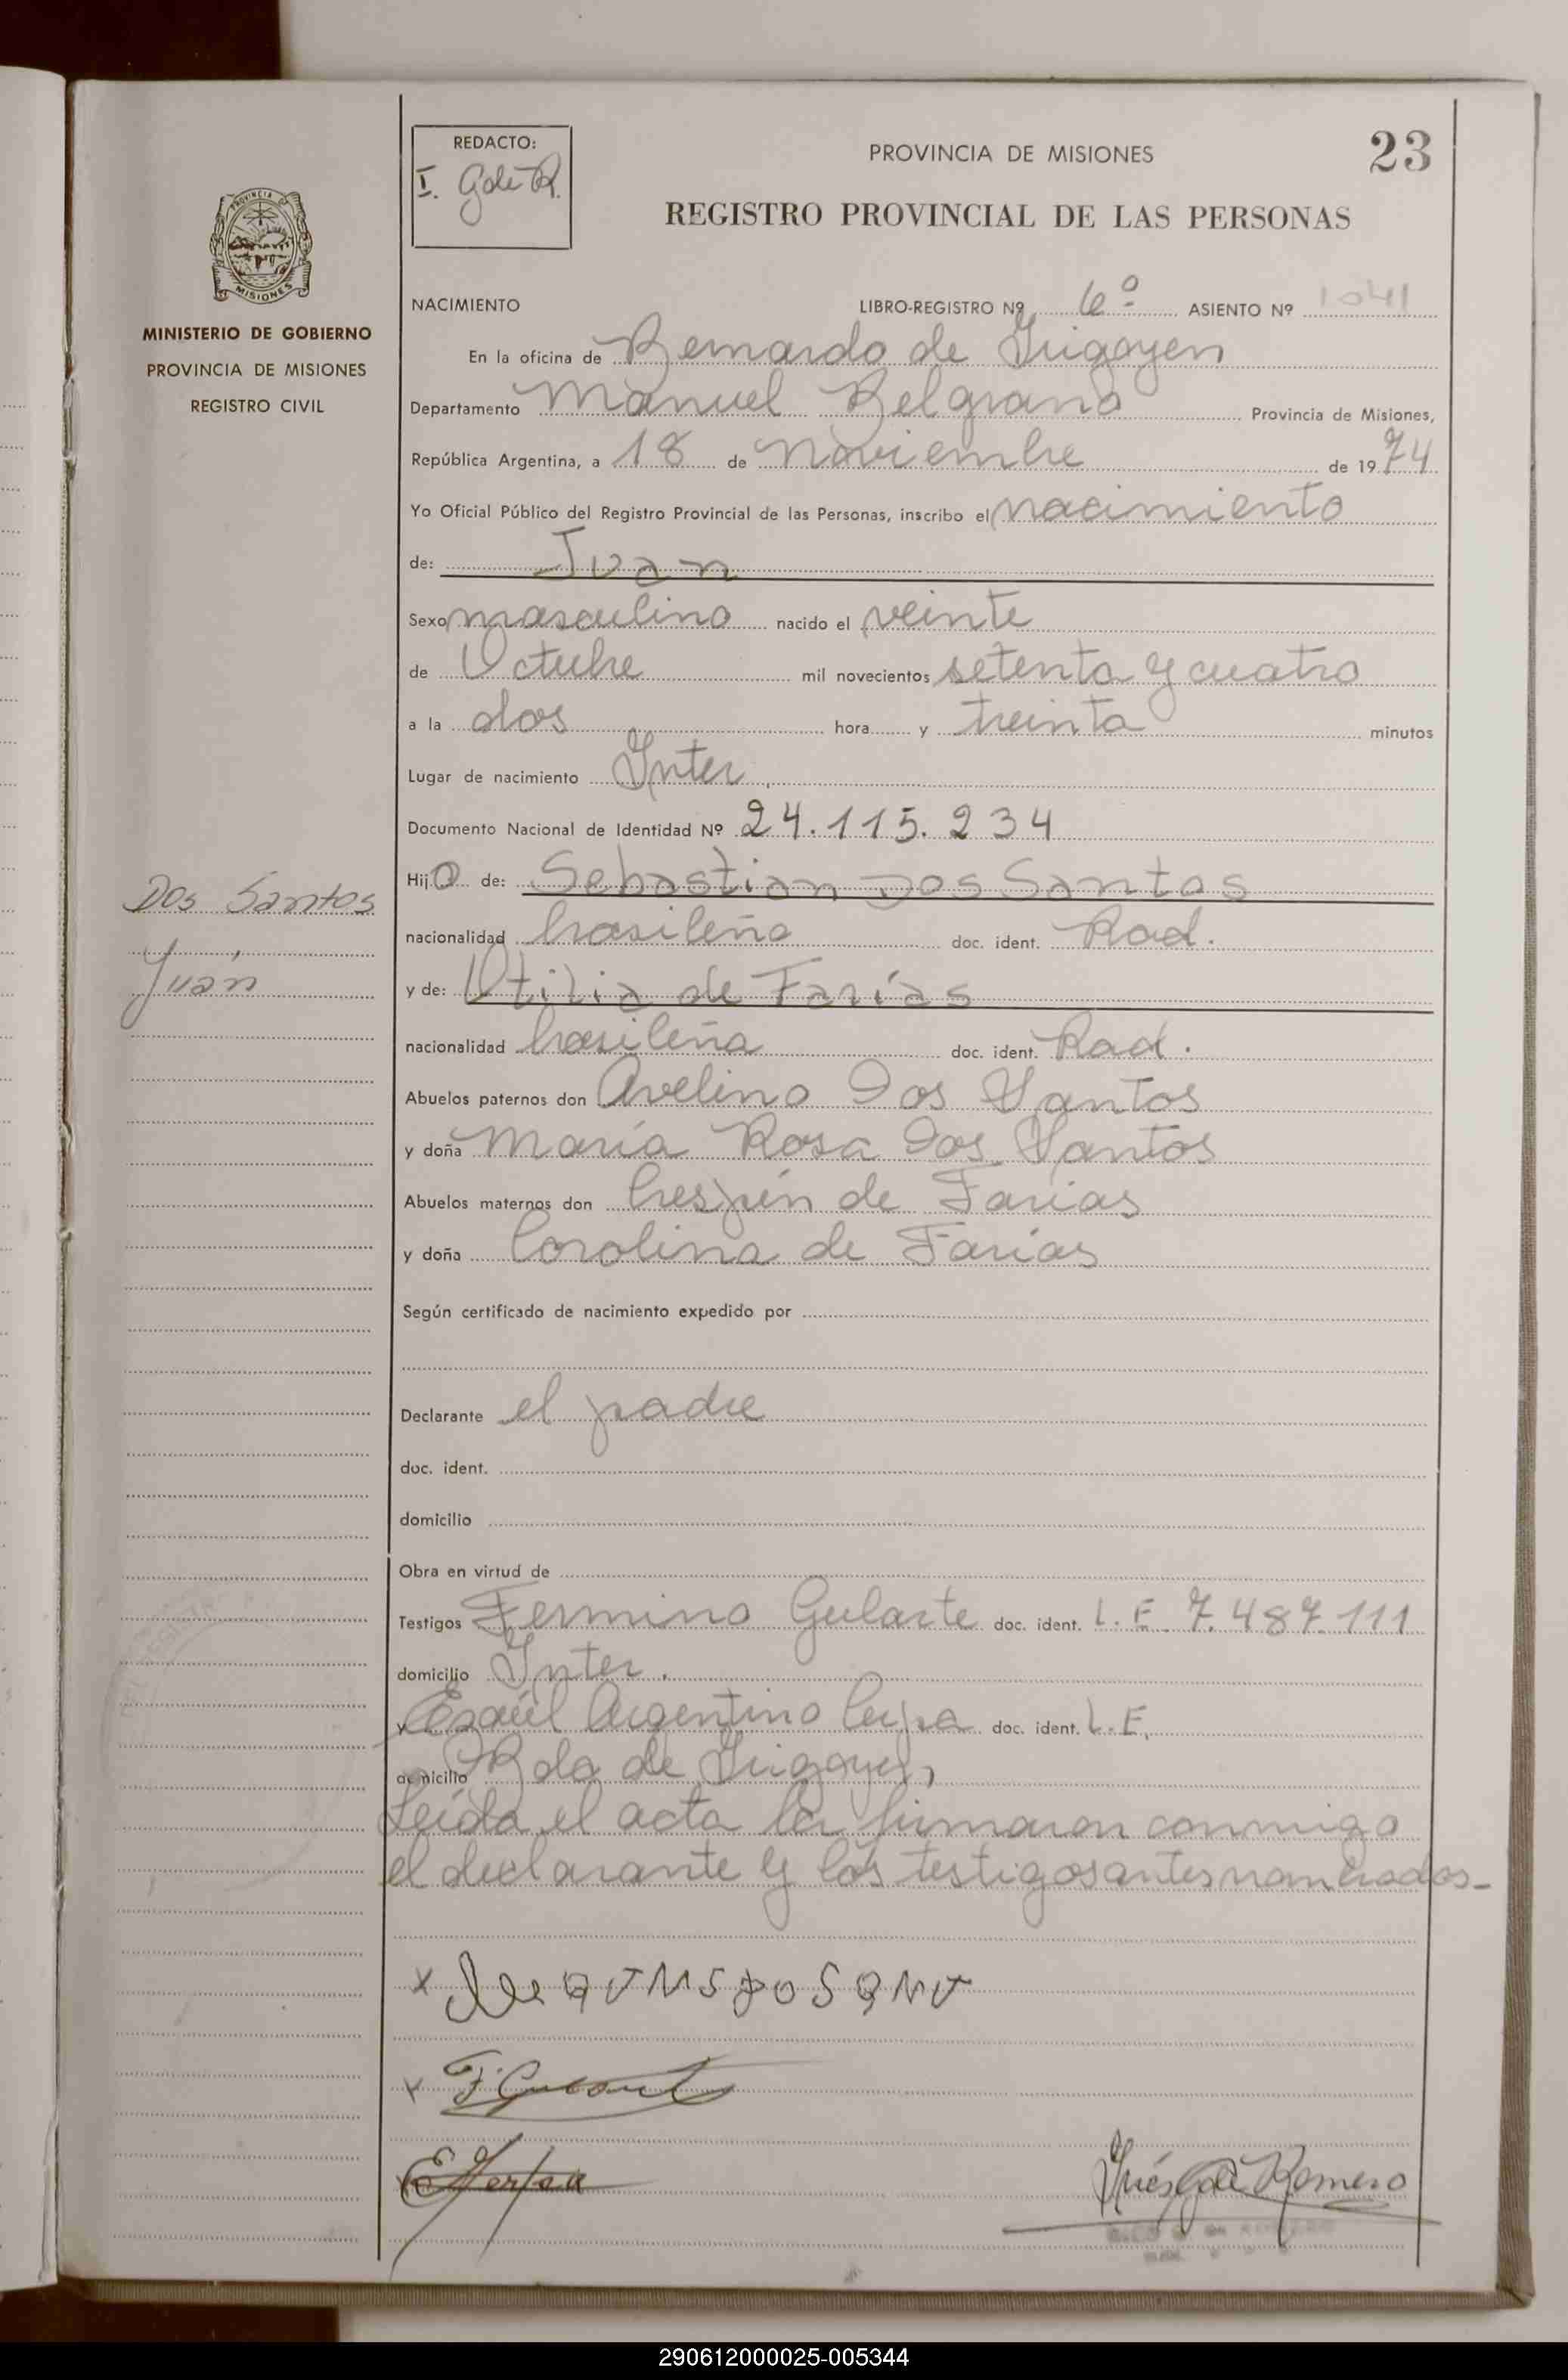 23
REDACTO:
I. G de R.
PROVINCIA DE MISIONES
REGISTRO PROVINCIAL DE LAS PERSONAS
PROVINCIA DE
MISIONES
MINISTERIO DE GOBIERNO
PROVINCIA DE MISIONES
REGISTRO CIVIL
NACIMIENTO LIBRO-REGISTRO Nº 6º ASIENTO Nº 1041
En la oficina de Bernardo de Irigoyen
Departamento Manuel Belgrano Provincia de Misiones,
República Argentina, a 18 de Noviembre de 1974
Yo Oficial Público del Registro Provincial de las Personas, inscribo el nacimiento
de: Juan
Sexo masculino nacido el veinte
de Octubre mil novecientos setenta y cuatro
a la dos hora y treinta minutos
Lugar de nacimiento Inter
Documento Nacional de Identidad Nº 24.115.234
Hijo de: Sebastian Dos Santos
nacionalidad brasileña doc. ident. Rad.
y de: Otilia de Farías
nacionalidad brasileña doc. ident. Rad.
Abuelos paternos don Avelino Dos Santos
y doña María Rosa Dos Santos
Abuelos maternos don Crespin de Farías
y doña Carolina de Farías
Según certificado de nacimiento expedido por
Declarante el padre
doc. ident.
domicilio
Obra en virtud de
Testigos Fermino Gularte doc. ident. L. E. 7.487.111
domicilio Inter.
y Argentino doc. ident. L.E.
domicilio Bdo de Irigoyen,
Leída el acta la firmaron conmigo
el declarante y los testigos antes nombrados-
Dos Santos
Juán
Inés G de Romero
290612000025-005344